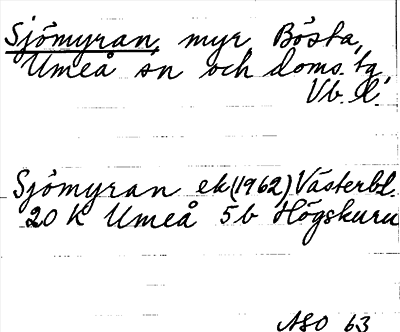 Sjömyran, myr Bösta,
Umeå sn och doms. tg,
Vb. l.
Sjömyran ek (1962) Västerbl.
20 K Umeå 5b Högskuru
ASO 63